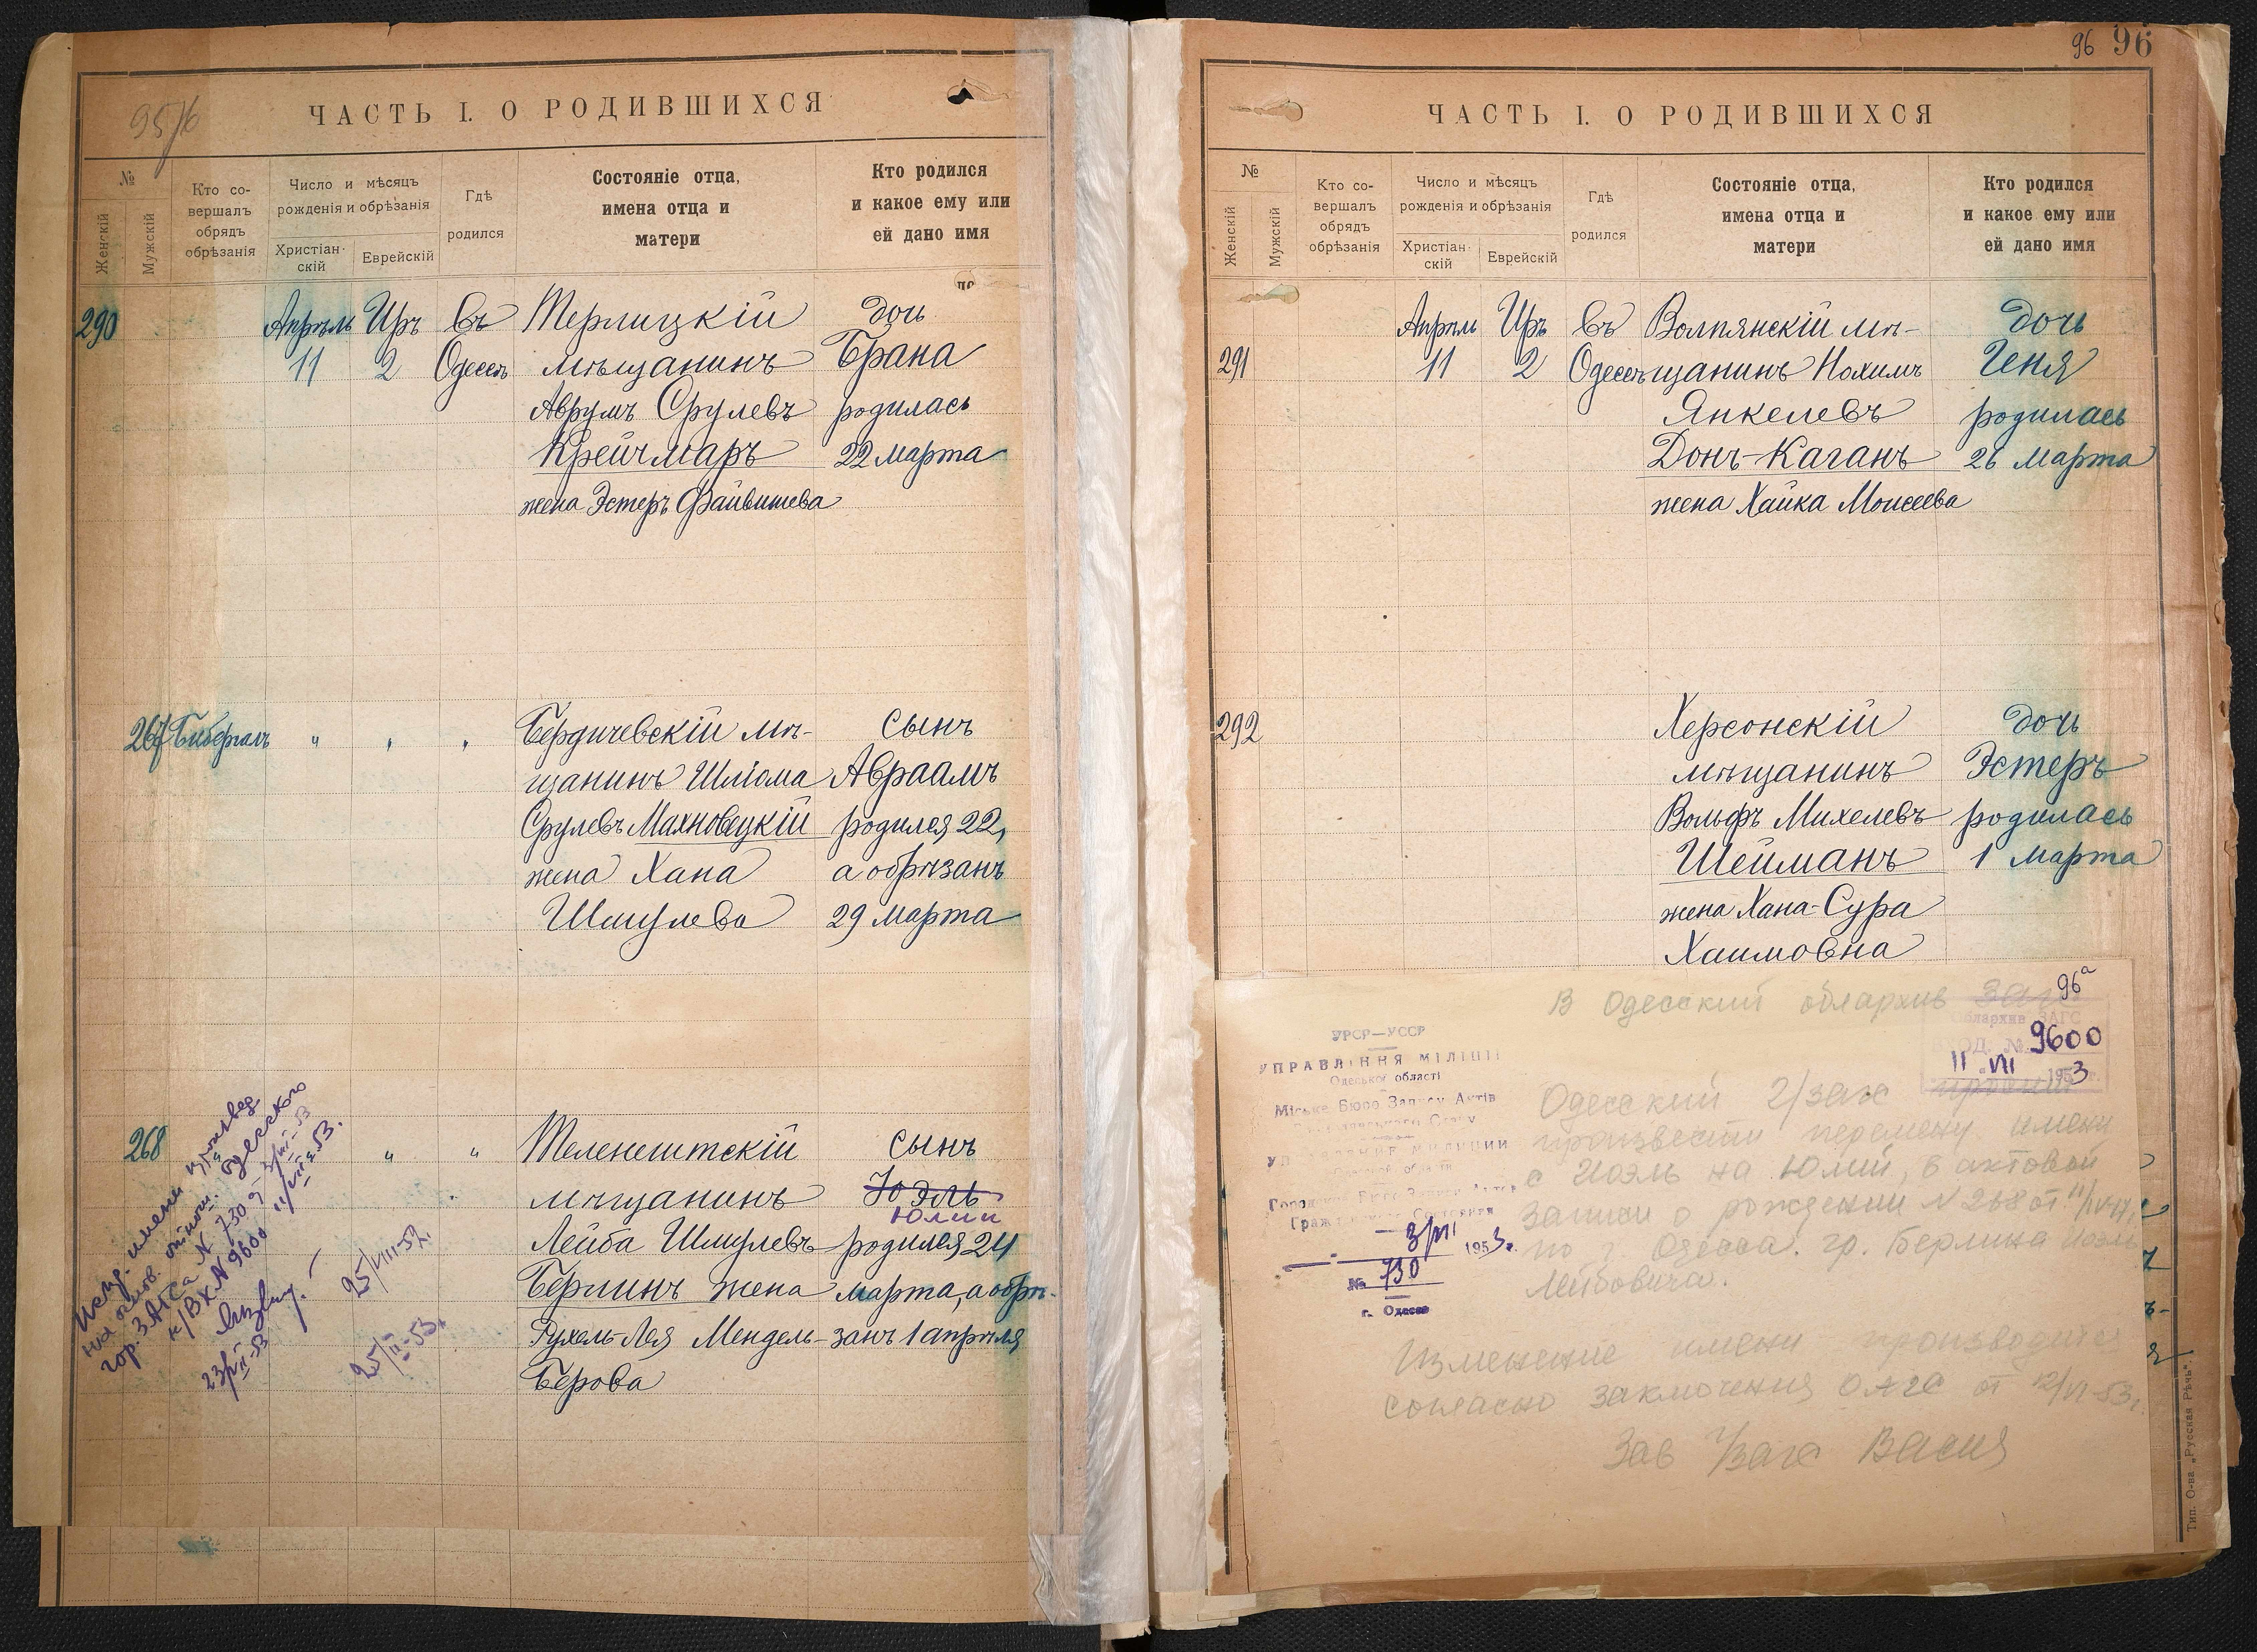 95/б
ЧАСТЬ I. О РОДИВШИХСЯ
№
Женскій
Мужскій
Кто со-
вершалъ
обрядъ
обрѣзанія
Число и мѣсяцъ
рожденія и обрѣзанія
Христіан-
скій
Еврейскій
Гдѣ
родился
Состояніе отца,
имена отца и
матери
Кто родился
и какое ему или
ей дано имя
290 Апрѣль Иръ Въ Терлицкій дочь
11 2 Одессѣ мѣщанинъ Брана
Аврумъ Срулевъ родилась
Крейчмаръ 22 марта
жена Эстеръ Файвишева
267 Биберталь " " " Бердичевскій мѣ- сынъ
щанинъ Шлiома Авраамъ
Срулевъ Махновецкій родился 22,
жена Хана а обрѣзанъ
Шмулева 29 марта
268 " " Теленештскій сынъ
мѣщанинъ Юэль
Юлий
Лейба Шмулевъ родился 24
Берлинъ жена марта, а обрѣ-
Рухель-Лея Мендель- занъ 1 апрѣля
Берова
имени произвед.
на основ. отнош. Одесского
гор. ЗАГСа № 730 от 3/VII-53
к/вх № 9600 11/VII-53.
23/II-53
25/VIII-52.
25/II-53.
96 96
ЧАСТЬ I. О РОДИВШИХСЯ
№
Женскій
Мужскій
Кто со-
вершалъ
обрядъ
обрѣзанія
Число и мѣсяцъ
рожденія и обрѣзанія
Христіан-
скій
Еврейскій
Гдѣ
родился
Состояніе отца,
имена отца и
матери
Кто родился
и какое ему или
ей дано имя
Апрѣль Иръ Въ Волпянскій мѣ- дочь
291 11 2 Одессѣ щанинъ Нохимъ Геня
Янкелевъ родилась
Донъ-Каганъ 26 марта
жена Хайка Моисеева
292 Херсонскій дочь
мѣщанинъ Эстеръ
Вольфъ Михелевъ родилась
Шейманъ 1 марта
жена Хана-Сура
Хаимовна
96а
В Одесский облархив загс
Облархив ЗАГС
ВХОД. № 9600
11 VII 1953
УРСР—УССР
УПРАВЛІННЯ МІЛІЦІЇ
Одеської області
Міське Бюро Запису Актів
Громадянського Стану
3/VII 1953 г.
№ 730
г. Одесса
Одесский г/загс просит
произвести перемену имени
с Иоэль на Юлий, в актовой
записи о рождении № 268 от 11/IV
по г. Одесса. гр. Берлина Иоэль
Лейбовича.
Изменение имени производится
согласно заключения ОАГС от 12/VI-53 г.
Зав г/загс
Тип. О-ва „Русская Рѣчь“.